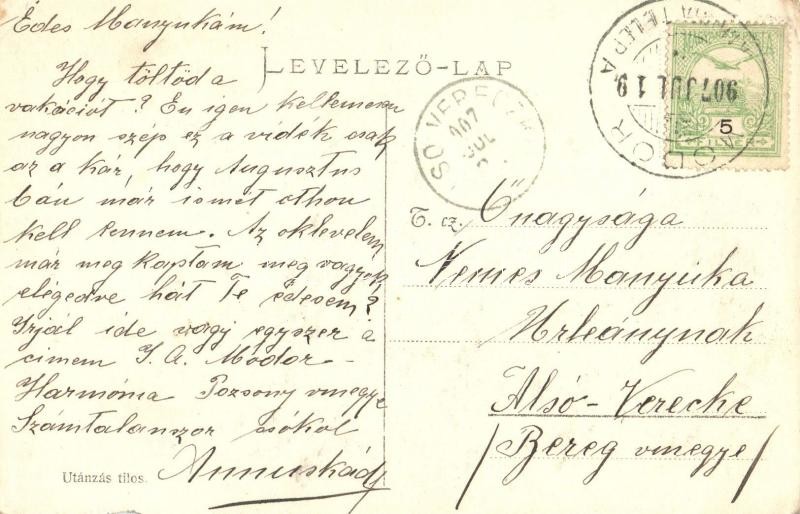 Édes Manyukám!
LEVELEZŐ-LAP
Hogy töltöd a
vakációt? Én igen kellemesen
nagyon szép ez a vidék csak
az a kár, hogy Augusztus
ban már ismét othon
kell lennem. Az oklevelem
már meg kaptam meg vagyok
elégedve hát Te édesem?
Irjál ide vagy egyszer a
cimem I. A. Modor-
Harmónia Pozsony vmegye
Számtalanszor csókol
Annuskád
Utánzás tilos.
T. cz. Őnagysága
Nemes Manyika
Urleánynak
Alsó-Verecke
/Bereg vmegye/
907 JUL 19
MODOR
TELEP A
5
SÓ VERECZK
907
JUL